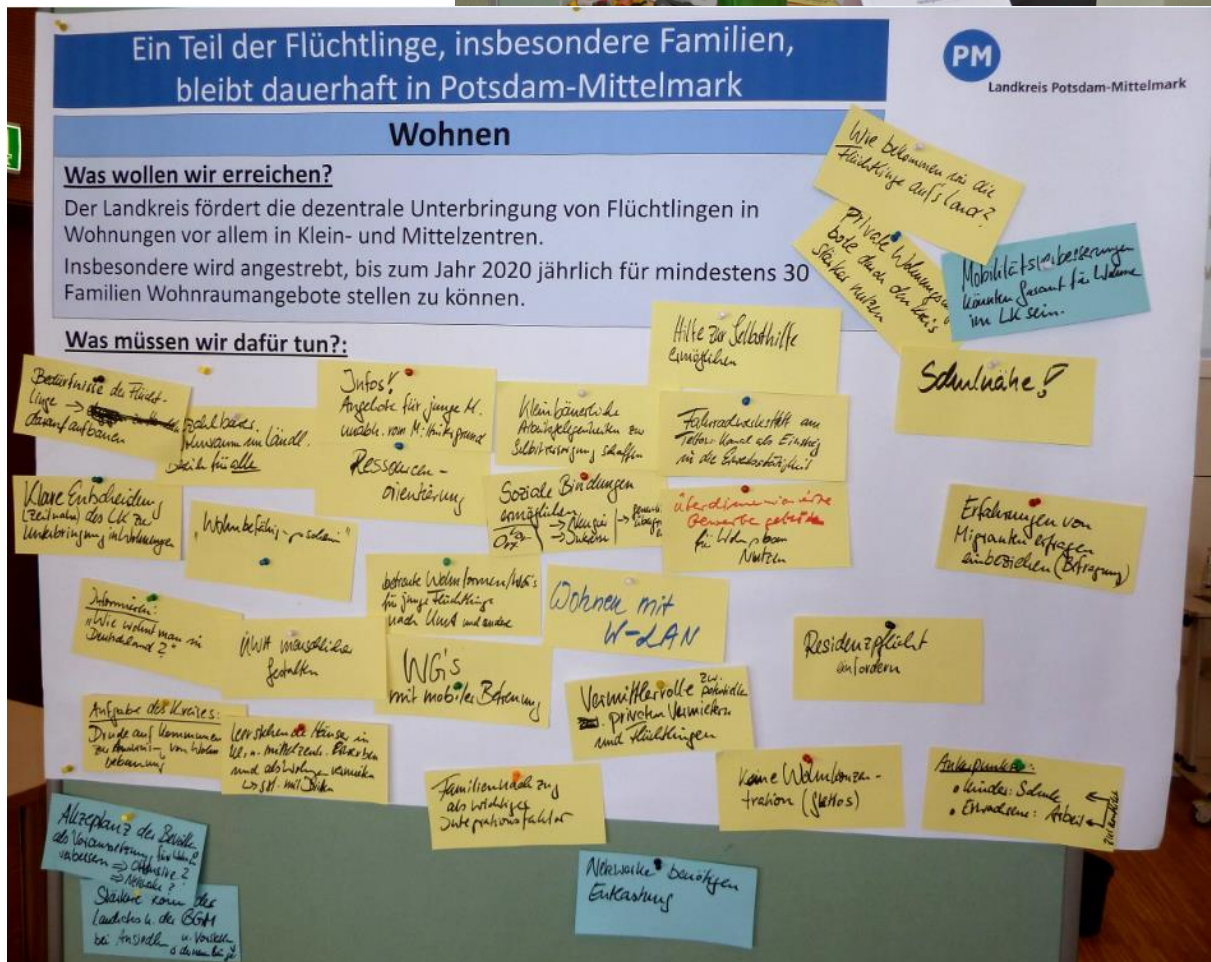 Ein Teil der Flüchtlinge, insbesondere Familien,
bleibt dauerhaft in Potsdam-Mittelmark
PM
Landkreis Potsdam-Mittelmark
Wohnen
Was wollen wir erreichen?
Der Landkreis fördert die dezentrale Unterbringung von Flüchtlingen in
Wohnungen vor allem in Klein- und Mittelzentren.
Insbesondere wird angestrebt, bis zum Jahr 2020 jährlich für mindestens 30
Familien Wohnraumangebote stellen zu können.
Wie bekommen wir die
Flüchtlinge auf's Land?
Private Wohnungs
bote durch den Kreis
stärker nutzen
Mobilitätsverbesserungen
könnten Gesamt für Wohnen
im LK sein.
Was müssen wir dafür tun?:
Bedürfnisse der Flücht-
linge →
darauf aufbauen
im ländl.
für alle
Infos!
Angebote für junge M.
unabh. vom M.Hintergrund
Kleinbäuerliche
Arbeitsgelegenheiten zur
Selbstversorgung schaffen
Hilfe zur Selbsthilfe
ermöglichen
Fahrradwerkstatt am
Teltow-Kanal als Einstieg
in die Erwerbstätigkeit
Schulnähe!
Ressourcen-
orientierung
Klare Entscheidung
(zeitnah) des LK zu
Unterbringung in Wohnungen
"Wohnbefähig
Soziale Bindungen
ermöglichen
überdimensionierte
Gewerbegebiete
für Wohnbau
Nutzen
Erfahrungen von
Migranten erfragen
einbeziehen (Befragung)
Informieren:
"Wie wohnt man in
Deutschland?"
ÜWH menschlicher
gestalten
betreute Wohnformen/WG's
für junge Flüchtlinge
nach UmA und andere
Wohnen mit
W-LAN
Residenzpflicht
einfordern
WG's
mit mobiler Betreuung
Vermittlerrolle zw.
potentiellen
privaten Vermietern
und Flüchtlingen
Aufgabe des Kreises:
Druck auf Kommunen
zur von Wohn
bebauung
Leerstehende Häuser in
kl. u. mittelzent. Erwerben
und als Wohnungen vermieten
Familiennachzug
als wichtiger
Integrationsfaktor
Keine Wohnkonzen-
tration (Ghettos)
Ankerpunkte:
• Kinder: Schule
• Erwachsene: Arbeit
Akzeptanz der Bevölk
als Voraussetzung für
verbessern ⇒ Offensive?
⇒ Netzwerke?
Landrats u. der BGM
bei
Netzwerke benötigen
Entlastung